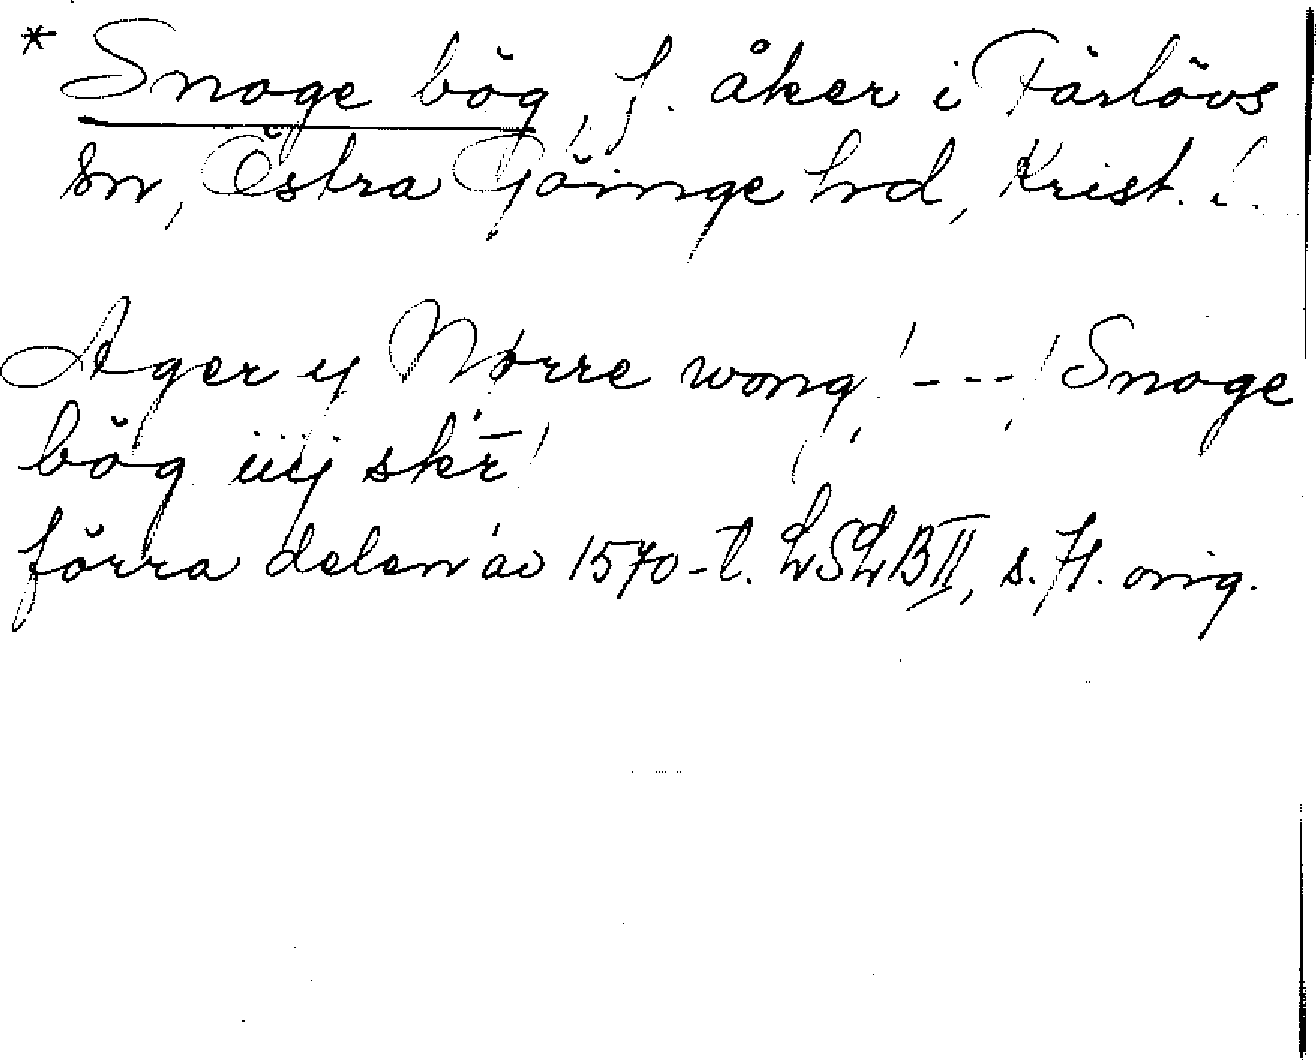 * Snoge bög, f. åker i Färlövs
sn, Östra Göinge hd, Krist. l.
Ager y Nørre wong, /---/ Snoge
bög iiij skr̄
förra delen av 1570-t. LSLB II, s. 71. orig.